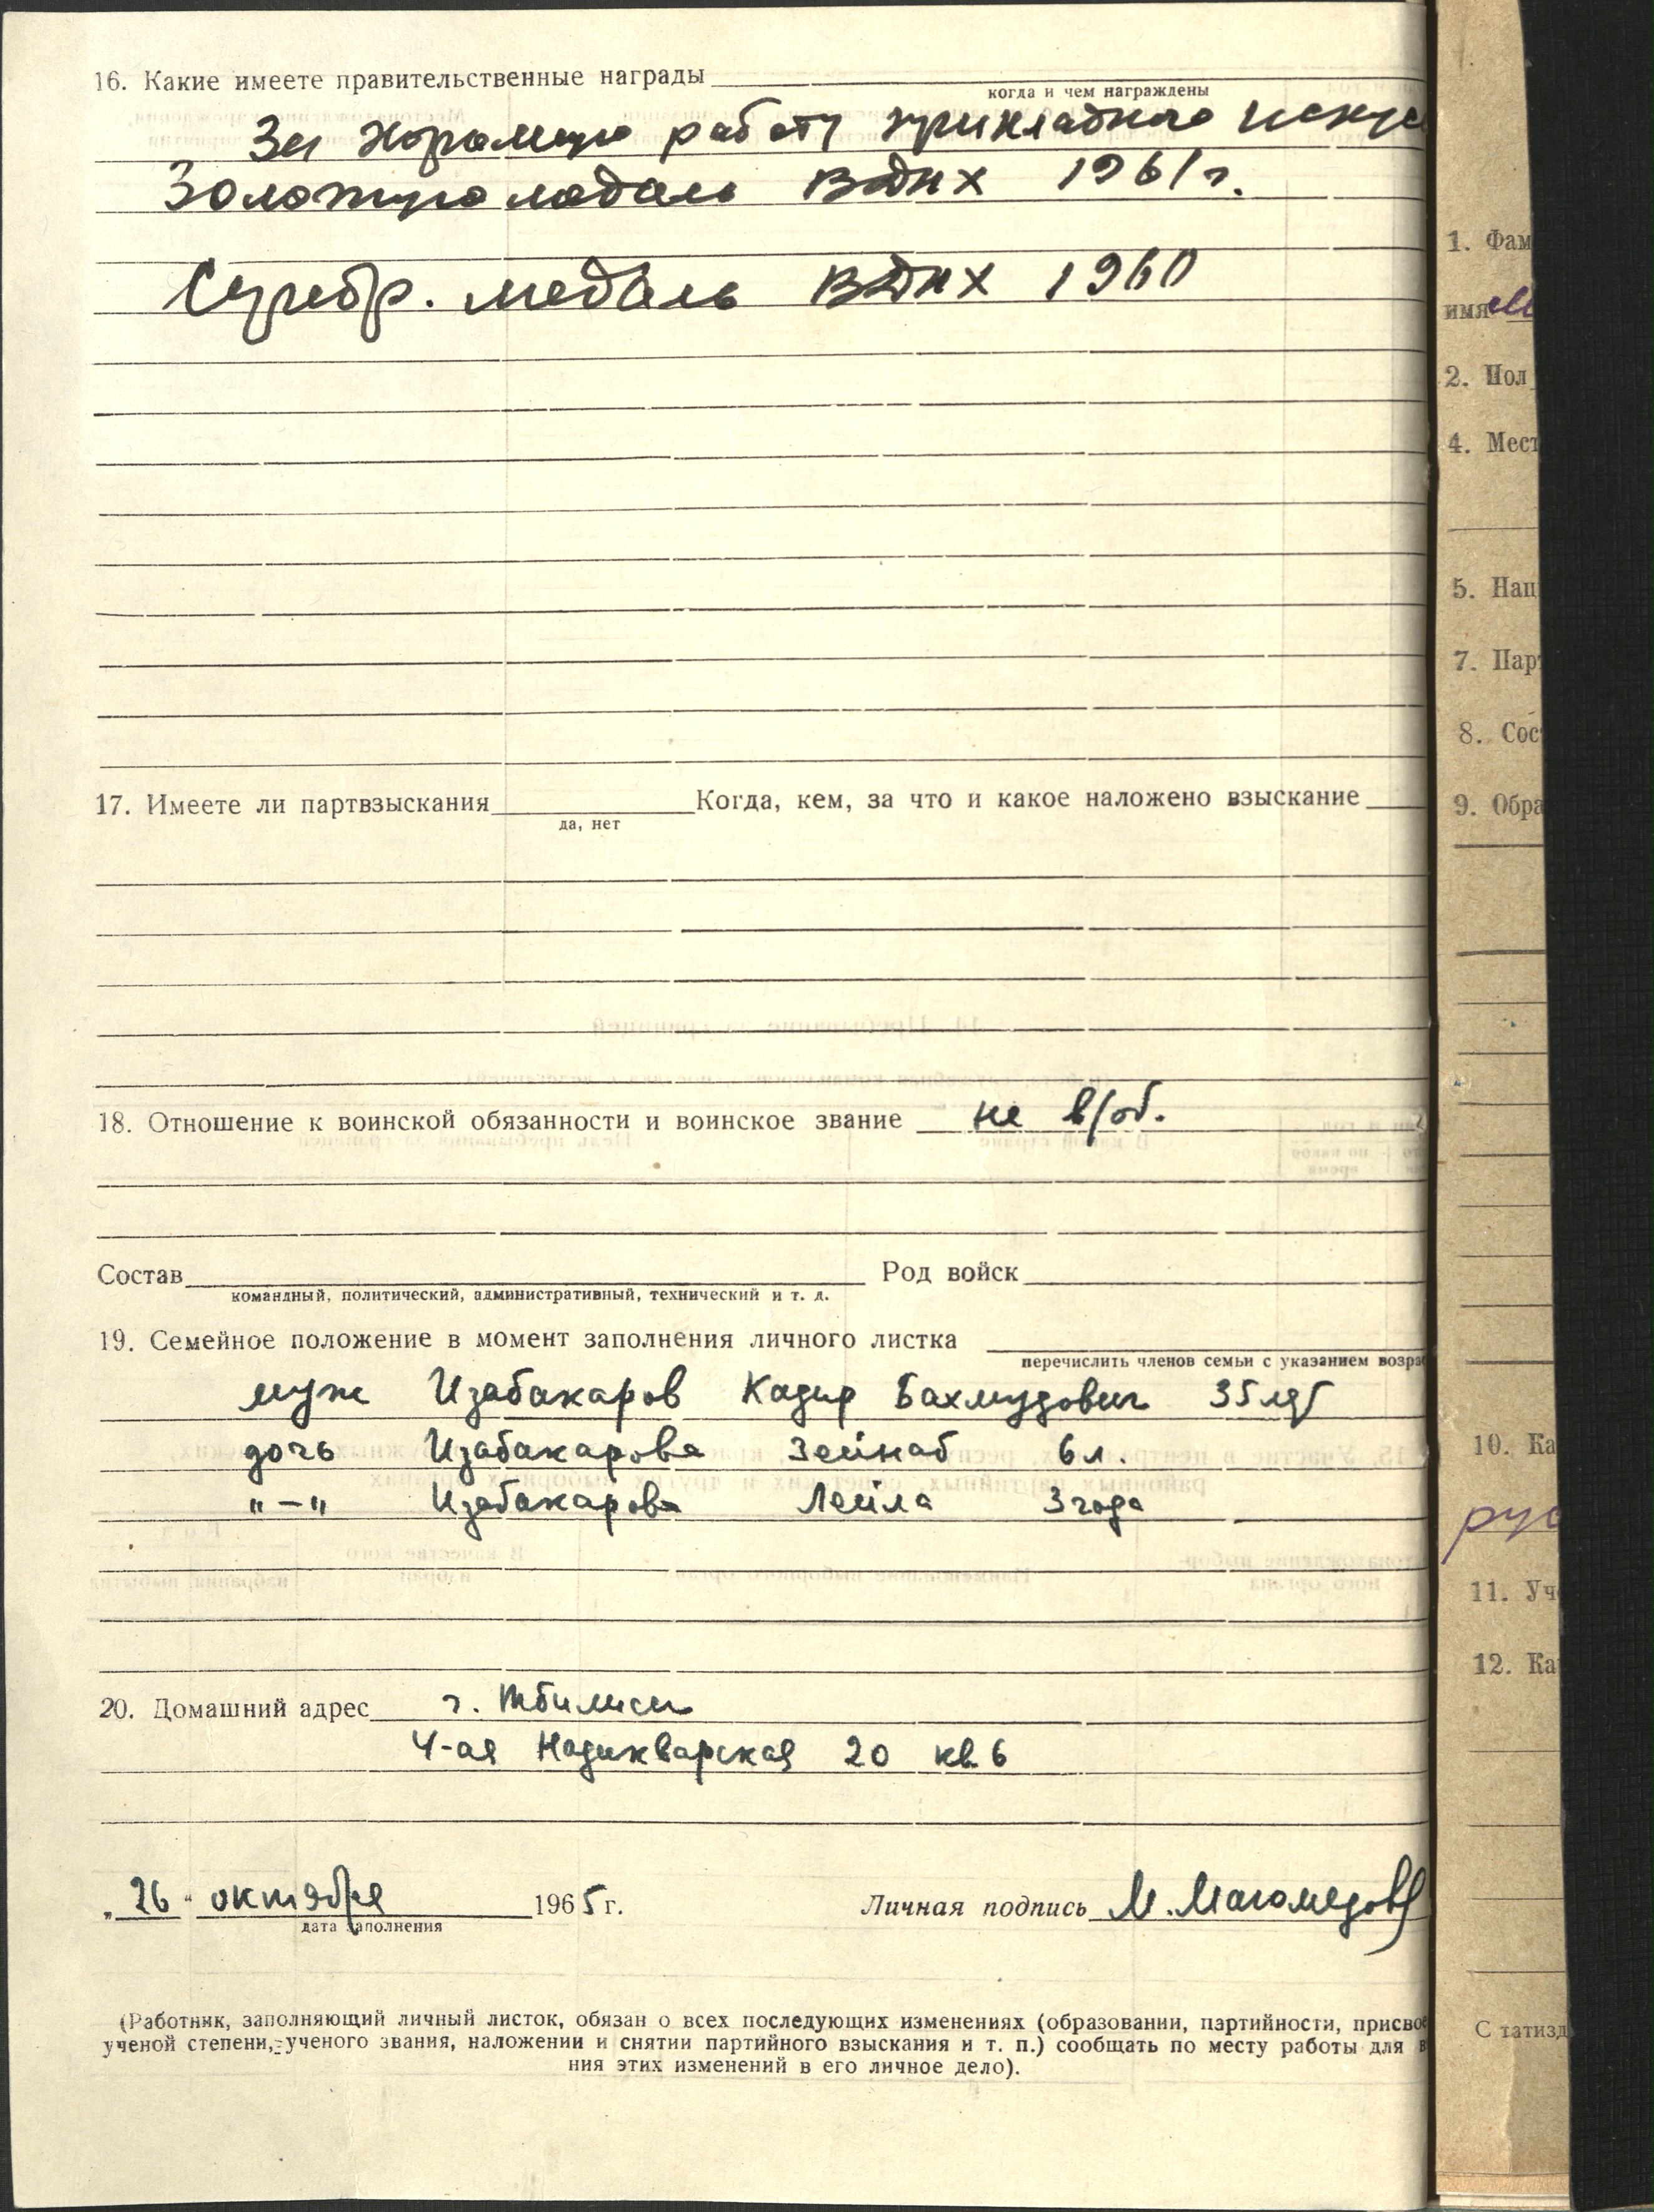 16. Какие имеете правительственные награды
когда и чем награждены
За хорошую работу прикладного искус
Золотую медаль ВДНХ 1961 г.
Серебр. медаль ВДНХ 1960
17. Имеете ли партвзыскания Когда, кем, за что и какое наложено взыскание
да, нет
18. Отношение к воинской обязанности и воинское звание не в/об.
Состав Род войск
командный, политический, административный, технический и т. д.
19. Семейное положение в момент заполнения личного листка
перечислить членов семьи с указанием возра
муж Изабакаров Кадир Бахмудович 35 лет
дочь Изабакарова Зейнаб 6 л.
"–" Изабакарова Лейла 3 года
20. Домашний адрес г. Тбилиси
4-ая Надикварская 20 кв 6
„26" октября 1965 г. Личная подпись М. Магомедов
дата заполнения
(Работник, заполняющий личный листок, обязан о всех последующих изменениях (образовании, партийности, присвое
ученой степени, ученого звания, наложении и снятии партийного взыскания и т. п.) сообщать по месту работы для в
ния этих изменений в его личное дело).
1. Фам
имя
2. Пол
4. Мест
5. Нац
7. Пар
8. Сос
9. Обра
10. Ка
рус
11. Уч
12. Ка
Статизд